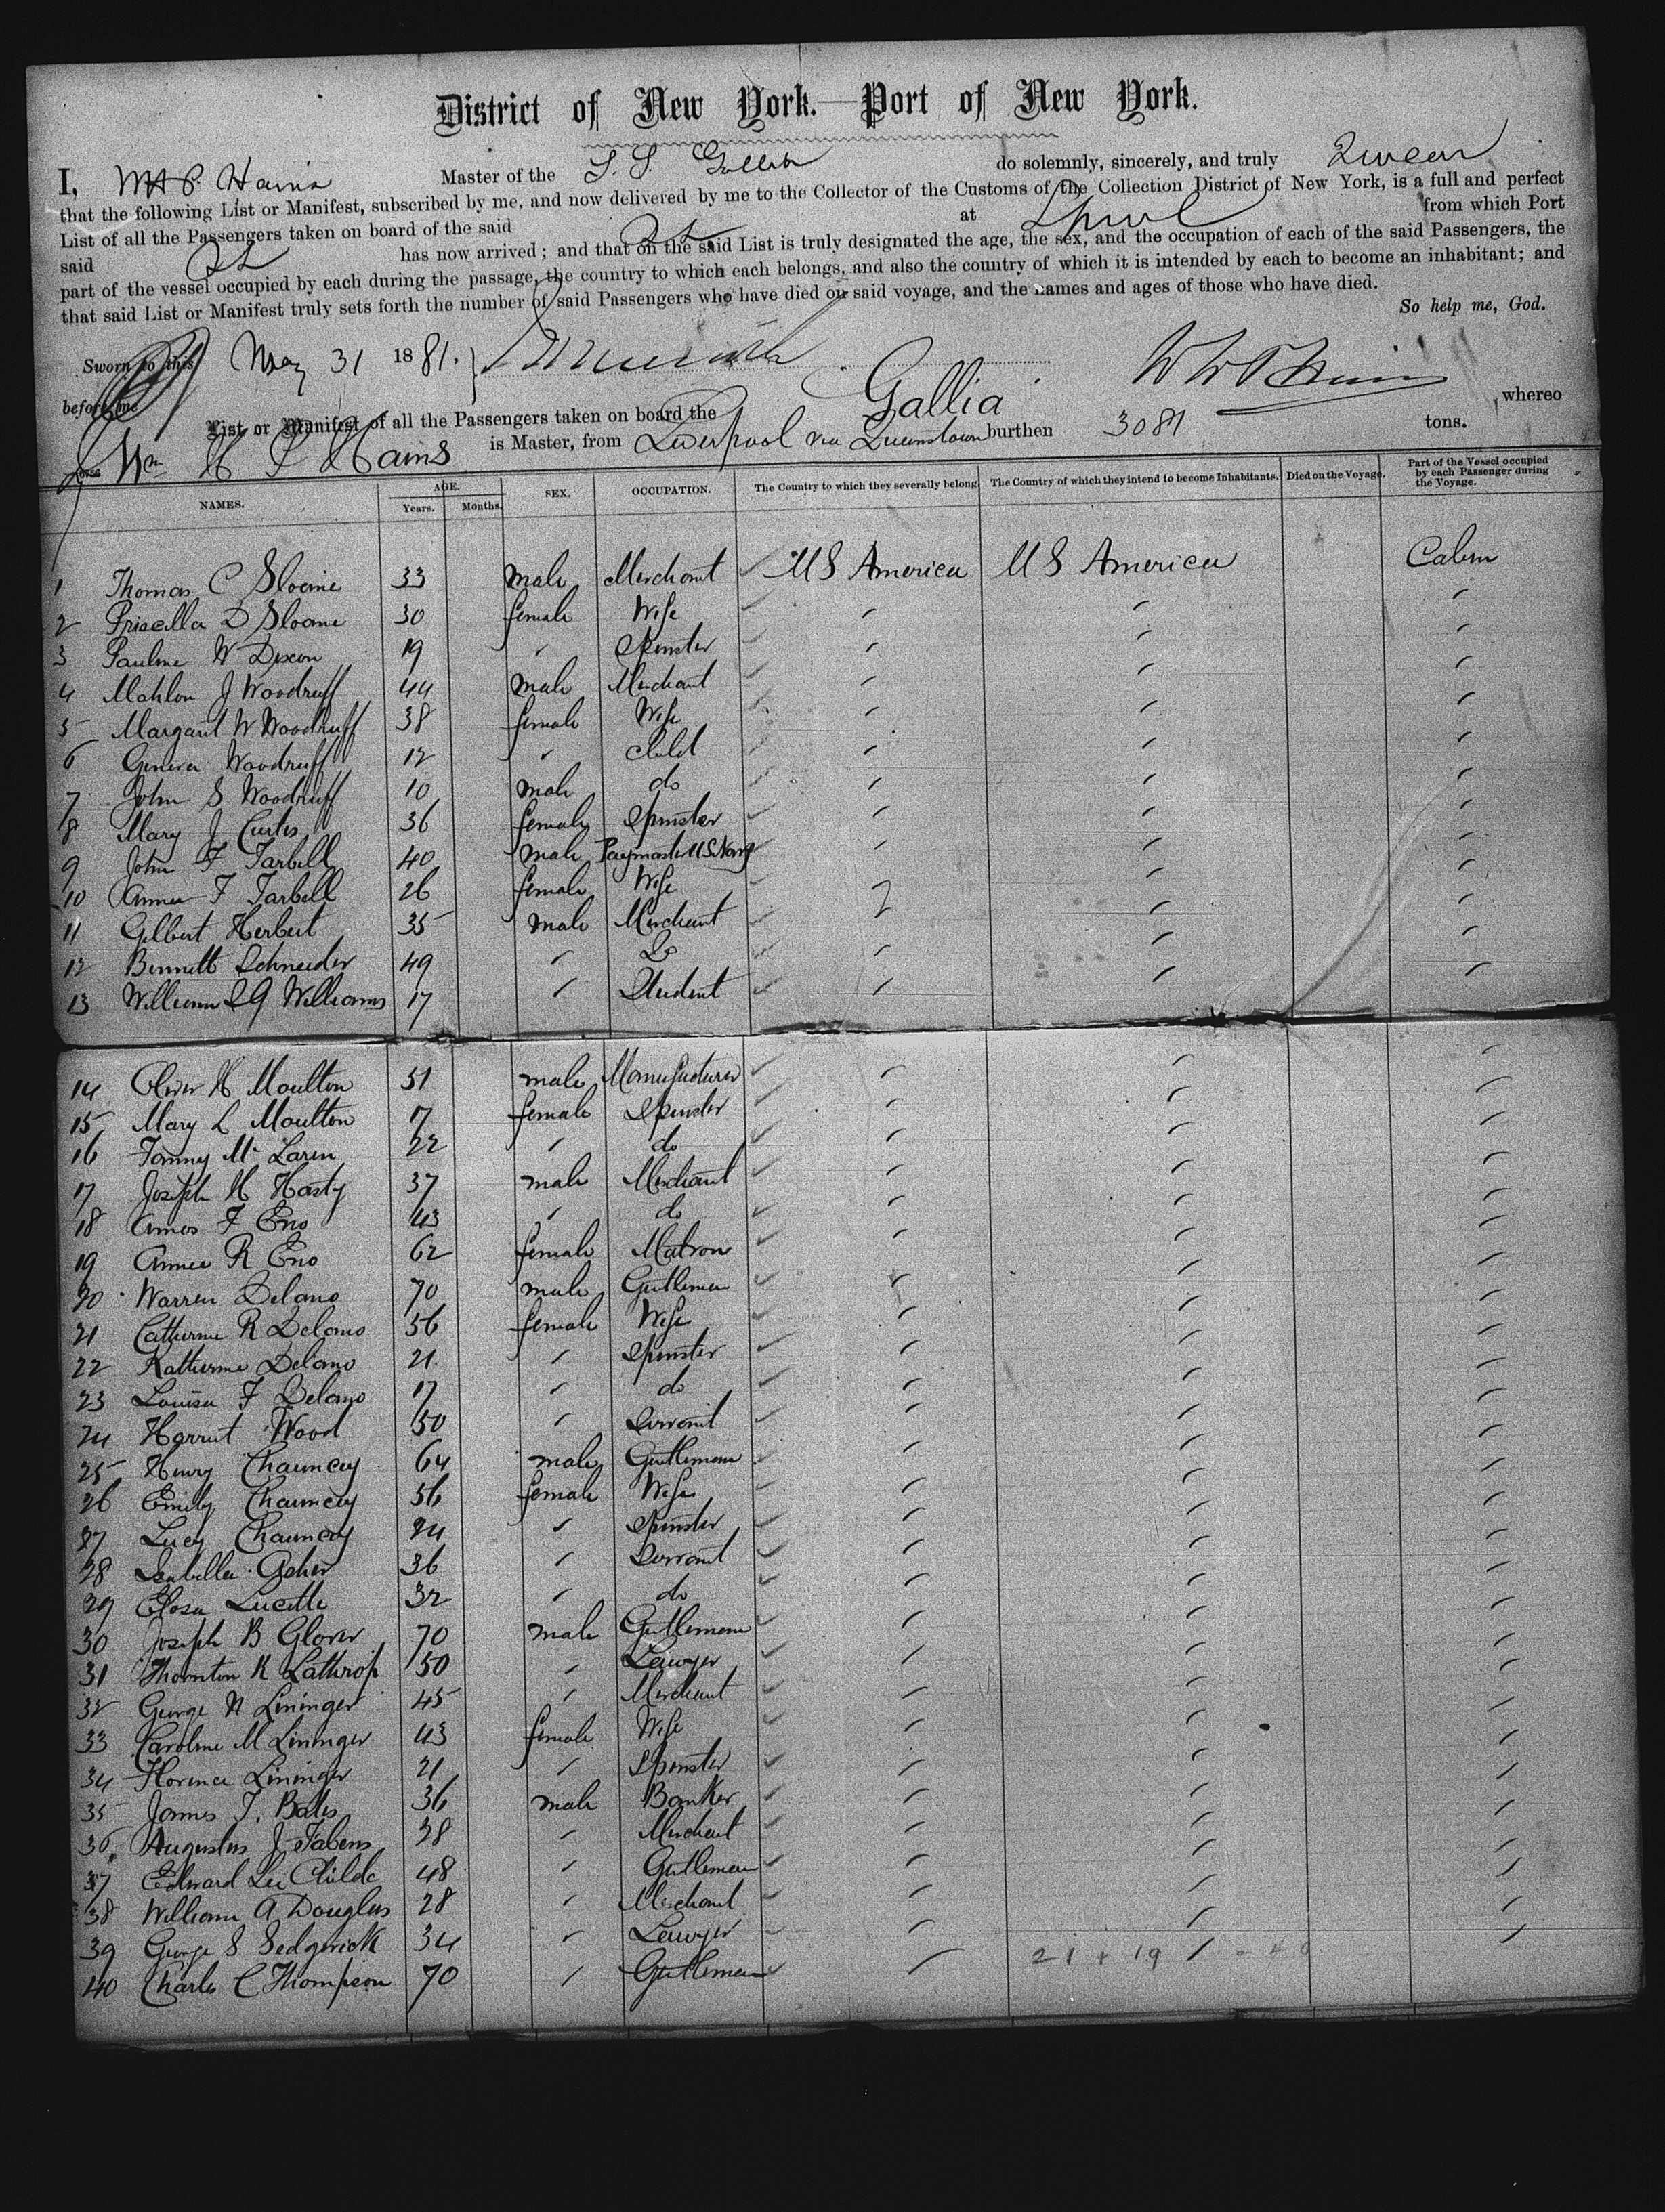 District of New York.—Port of New York.
I, Hains Master of the S. S. Gallia do solemnly, sincerely, and truly Swear
that the following List or Manifest, subscribed by me, and now delivered by me to the Collector of the Customs of the Collection District of New York, is a full and perfect
List of all the Passengers taken on board of the said at from which Port
said has now arrived; and that on the said List is truly designated the age, the sex, and the occupation of each of the said Passengers, the
part of the vessel occupied by each during the passage, the country to which each belongs, and also the country of which it is intended by each to become an inhabitant; and
that said List or Manifest truly sets forth the number of said Passengers who have died on said voyage, and the names and ages of those who have died.
So help me, God.
Sworn to this May 31 1881.
before me
List or Manifest of all the Passengers taken on board the Gallia whereo
Wm H P Hains is Master, from Liverpool via Queenstown burthen 3081 tons.
NAMES. AGE. Years. Months. SEX. OCCUPATION. The Country to which they severally belong. The Country of which they intend to become Inhabitants. Died on the Voyage. Part of the Vessel occupied by each Passenger during the Voyage.
1 Thomas C Sloane 33 male Merchant U S America U S America Cabin
2 Priscilla D Sloane 30 female Wife
3 Pauline W Dixon 19 " Spinster
4 Mahlon J Woodruff 44 male Merchant
5 Margaret W Woodruff 38 female Wife
6 Geneva Woodruff 12 " child
7 John S Woodruff 10 male do
8 Mary J Curtis 36 female Spinster
9 John F Tarbell 40 male Paymaster U.S. Navy
10 Annie F Tarbell 26 female Wife
11 Gilbert Herbert 35 male Merchant
12 Bennett Schneider 49 " Do
13 William S G Williams 17 " Student
14 Oliver H Moulton 51 male Manufacturer
15 Mary L Moulton 17 female Spinster
16 Fanny Mc Laren 22 " do
17 Joseph H Hasty 37 male Merchant
18 Amos F Eno 43 " do
19 Annie R Eno 62 female Matron
20 Warren Delano 70 male Gentleman
21 Catherine R Delano 56 female Wife
22 Katherine Delano 21 " Spinster
23 Louisa F Delano 17 " do
24 Harriet Wood 50 " Servant
25 Henry Chauncey 64 male Gentleman
26 Emily Chauncey 56 female Wife
27 Lucy Chauncey 24 " Spinster
28 Isabella Asher 36 " Servant
29 Elosa Lucette 32 " do
30 Joseph B Glover 70 male Gentleman
31 Thornton K Lathrop 50 " Lawyer
32 George W Lininger 45 " Merchant
33 Caroline M Lininger 43 female Wife
34 Florence Lininger 21 " Spinster
35 James T. Bates 36 male Banker
36 Augustus J Fabens 38 " Merchant
37 Edward Lee Childe 48 " Gentleman
38 William A Douglas 28 " Merchant
39 George S Sedgwick 34 " Lawyer
40 Charles C Thompson 70 " Gentleman
21 + 19 = 40